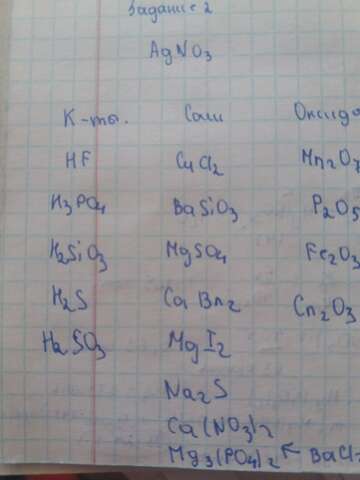 Задание 2
AgNO3
К-ты. Соли Оксиды
HF CuCl2 Mn2O7
H3PO4 BaSiO3 P2O5
H2SiO3 MgSO4 Fe2O3
H2S CaBr2 Cr2O3
H2SO3 MgI2
Na2S
Ca(NO3)2
Mg3(PO4)2 ← BaCl2